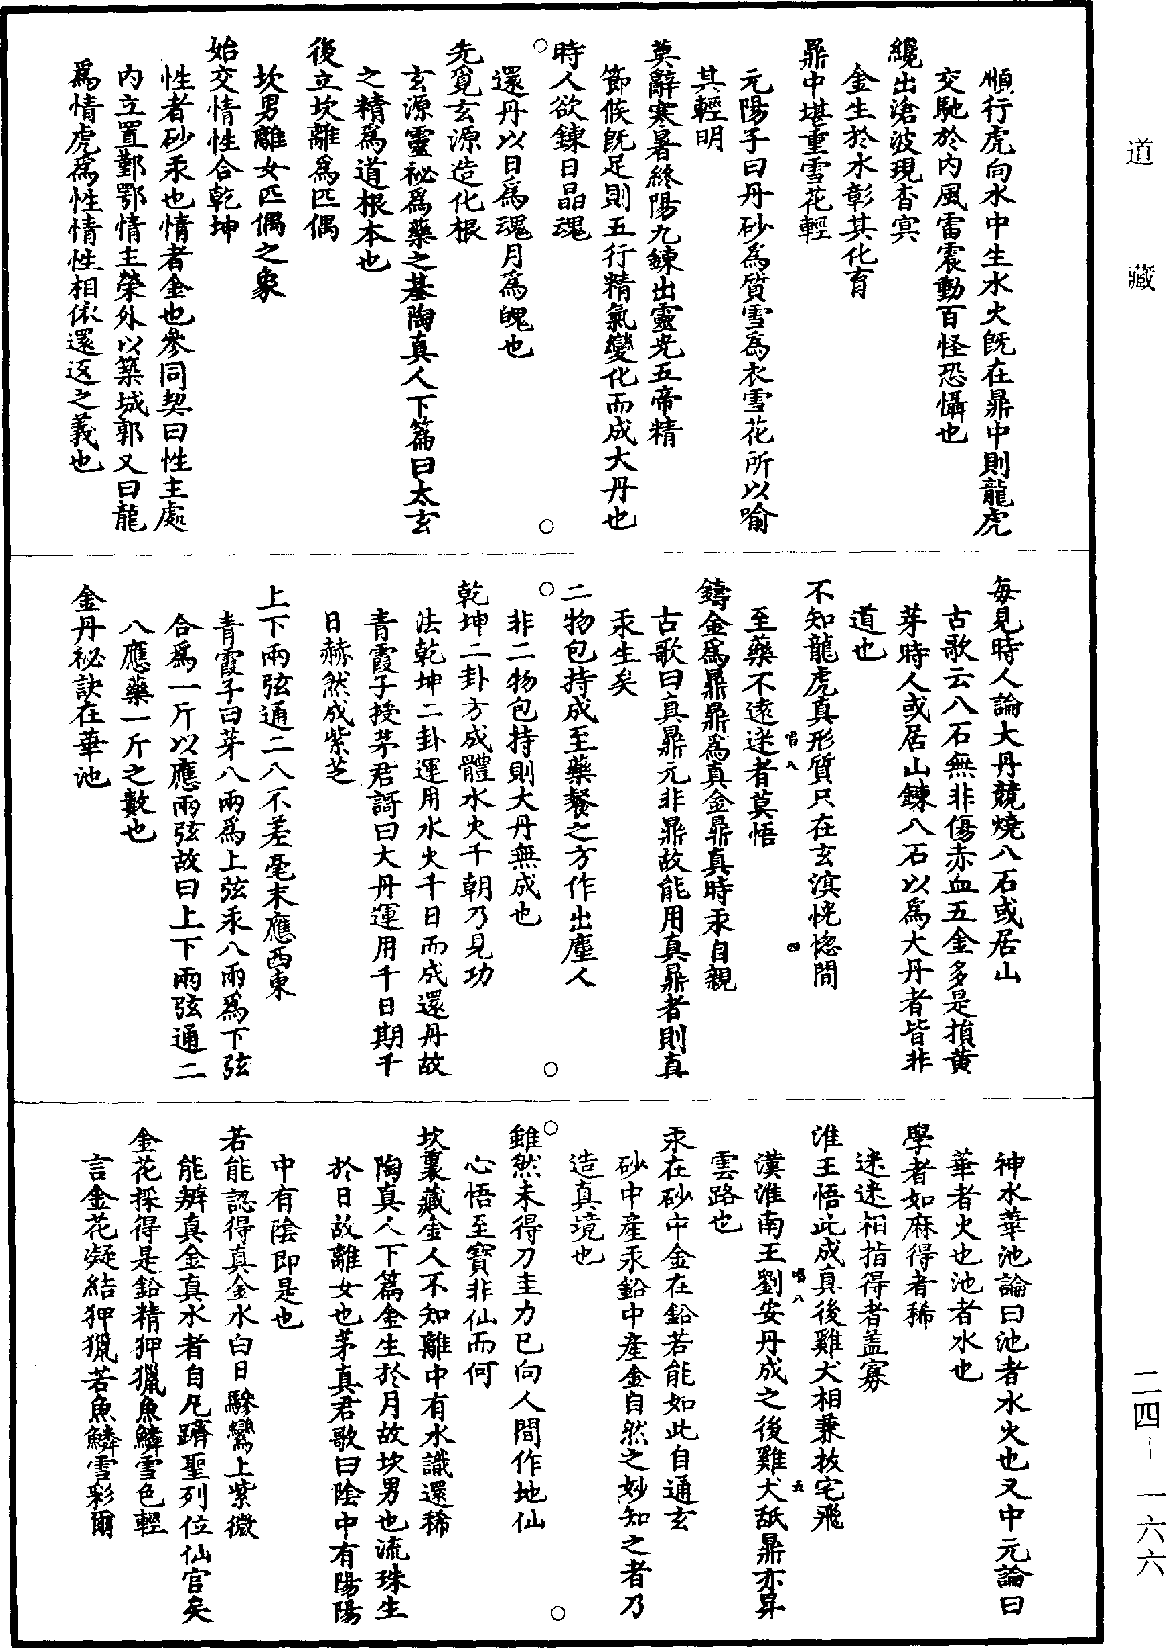 道藏
順行虎向水中生水火既在鼎中則龍虎
交馳於內風雷震動百怪恐懾也
纔出滄波現杳冥
金生於水彰其化育
鼎中堪重雪花輕
元陽子曰丹砂為質雪為衣雪花所以喻
其輕明
莫辭寒暑終陽九鍊出靈光五帝精
節候既足則五行精氣變化而成大丹也
時人欲鍊日晶魂
還丹以日為魂月為魄也
先覓玄源造化根
玄源靈祕爲藥之基陶真人下篇曰太玄
之精爲道根本也
後立坎離爲匹偶
坎男離女匹偶之象
始交情性合乾坤
性者砂汞也情者金也參同契曰性主處
內立置鄞鄂情主榮外以築城郭又曰龍
爲情虎爲性情性相依還返之義也
每見時人論大丹競燒八石或居山
古歌云八石無非傷赤血五金多是損黃
芽時人或居山鍊八石以爲大丹者皆非
道也
不知龍虎真形質只在玄溟恍惚間
至藥不遠迷者莫悟
鑄金爲鼎鼎爲真金鼎真時汞自親
古歌曰真鼎元非鼎故能用真鼎者則真
汞生矣
二物包持成至藥餐之方作出塵人
非二物包持則大丹無成也
乾坤二卦方成體水火千朝乃見功
法乾坤二卦運用水火千日而成還丹故
青霞子授茅君謌曰大丹運用千日期千
日赫然成紫芝
上下兩弦通二八不差毫末應西東
青霞子曰芽八兩爲上弦汞八兩爲下弦
合爲一斤以應兩弦故曰上下兩弦通二
八應藥一斤之數也
金丹祕訣在華池
神水華池論曰池者水火也又中元論曰
華者火也池者水也
學者如麻得者稀
迷迷相指得者蓋寡
淮王悟此成真後雞犬相兼拔宅飛
漢淮南王劉安丹成之後雞犬舐鼎亦昇
雲路也
汞在砂中金在鉛若能如此自通玄
砂中產汞鉛中產金自然之妙知之者乃
造真境也
雖然未得刀圭力已向人間作地仙
心悟至寶非仙而何
坎裏藏金人不知離中有水識還稀
陶真人下篇金生於月故坎男也流珠生
於日故離女也茅真君歌曰陰中有陽陽
中有陰即是也
若能認得真金水白日驂鸞上紫微
能辨真金真水者自凡躋聖列位仙官矣
金花採得是鉛精狎獵魚鱗雪色輕
言金花凝結狎獵若魚鱗雪彩爾
二四—一六六